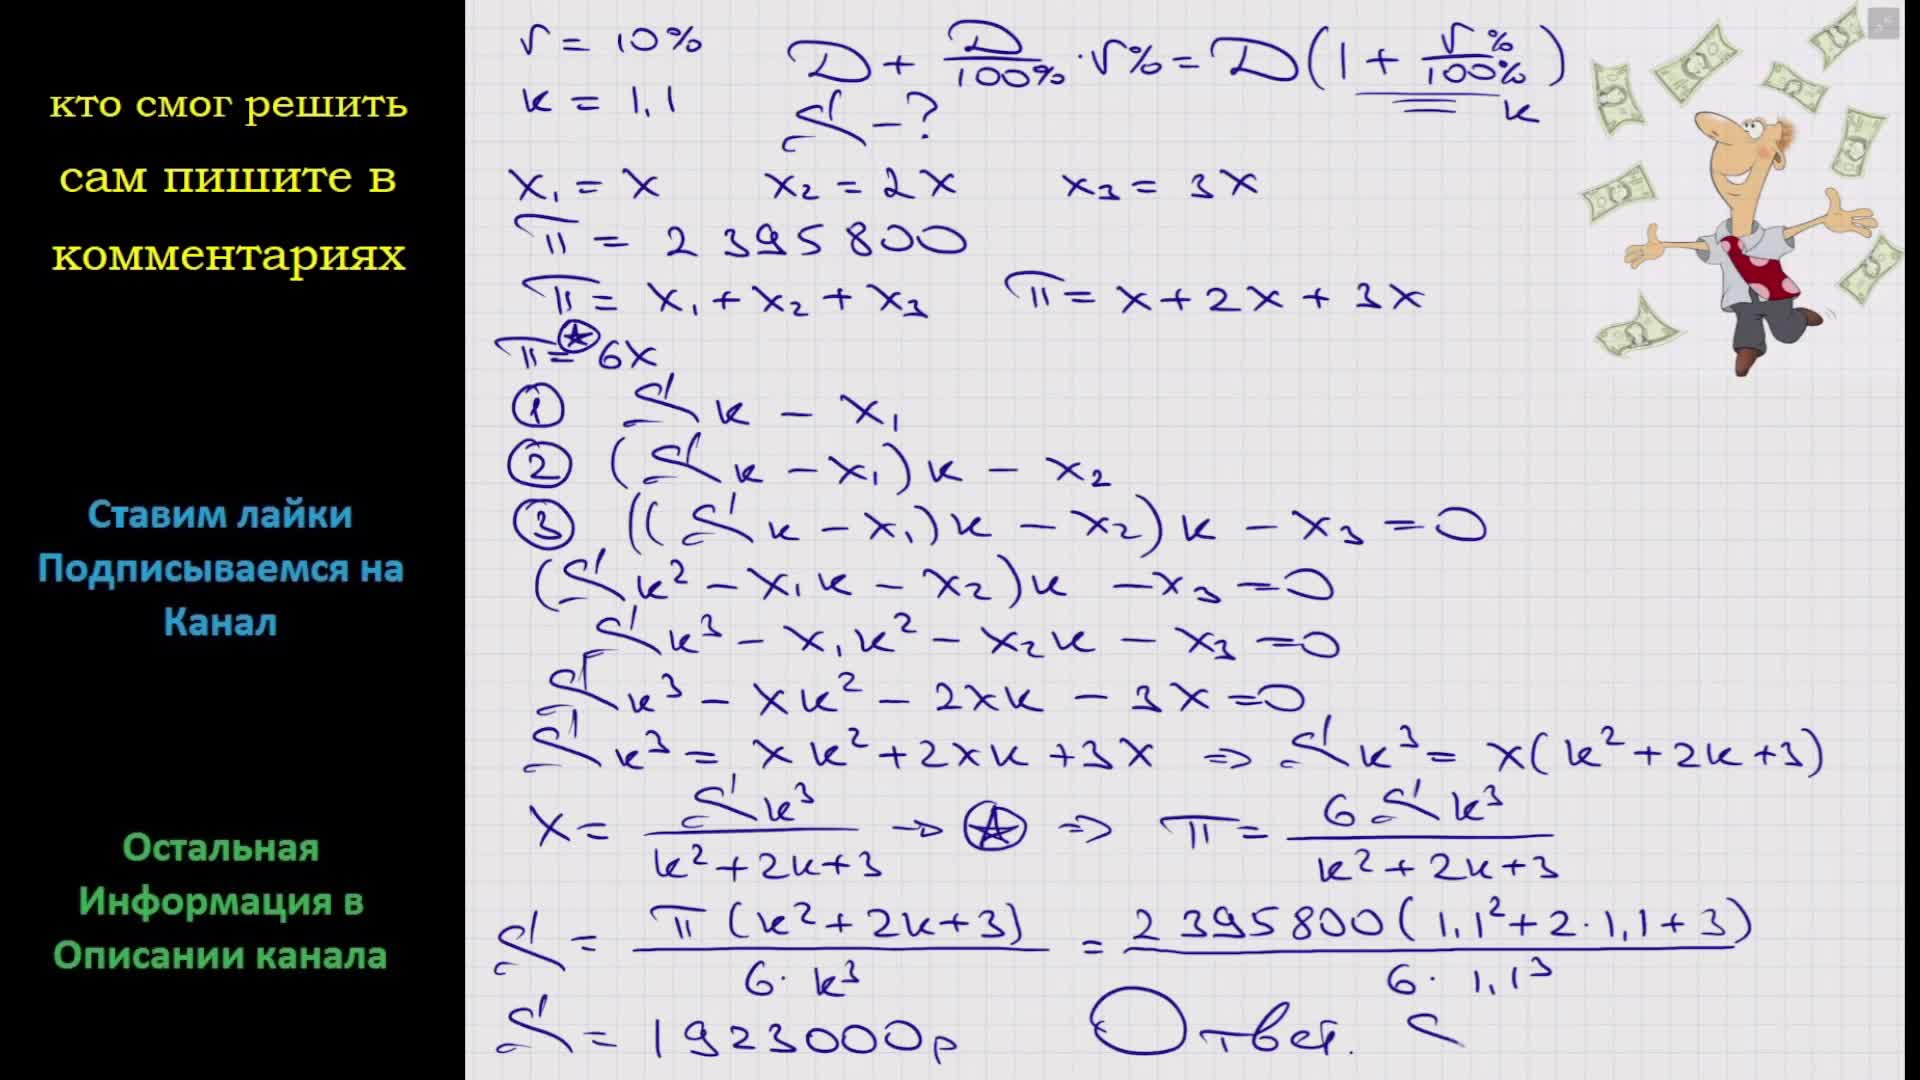 кто смог решить
сам пишите в
комментариях
Ставим лайки
Подписываемся на
Канал
Остальная
Информация в
Описании канала
r = 10%
D + D/100% · r% = D(1 + r%/100%)
k
k = 1,1
S - ?
x₁ = x x₂ = 2x x₃ = 3x
П = 2 395 800
П = x₁ + x₂ + x₃ П = x + 2x + 3x
П = 6x
① Sk - x₁
② (Sk - x₁)k - x₂
③ ((Sk - x₁)k - x₂)k - x₃ = 0
(Sk² - x₁k - x₂)k - x₃ = 0
Sk³ - x₁k² - x₂k - x₃ = 0
Sk³ - xk² - 2xk - 3x = 0
Sk³ = xk² + 2xk + 3x ⇒ Sk³ = x(k² + 2k + 3)
x = Sk³/(k² + 2k + 3) → ⍟ ⇒ П = 6Sk³/(k² + 2k + 3)
S = П(k² + 2k + 3)/(6 · k³) = 2 395 800(1,1² + 2 · 1,1 + 3)/(6 · 1,1³)
S = 1923000р Ответ.